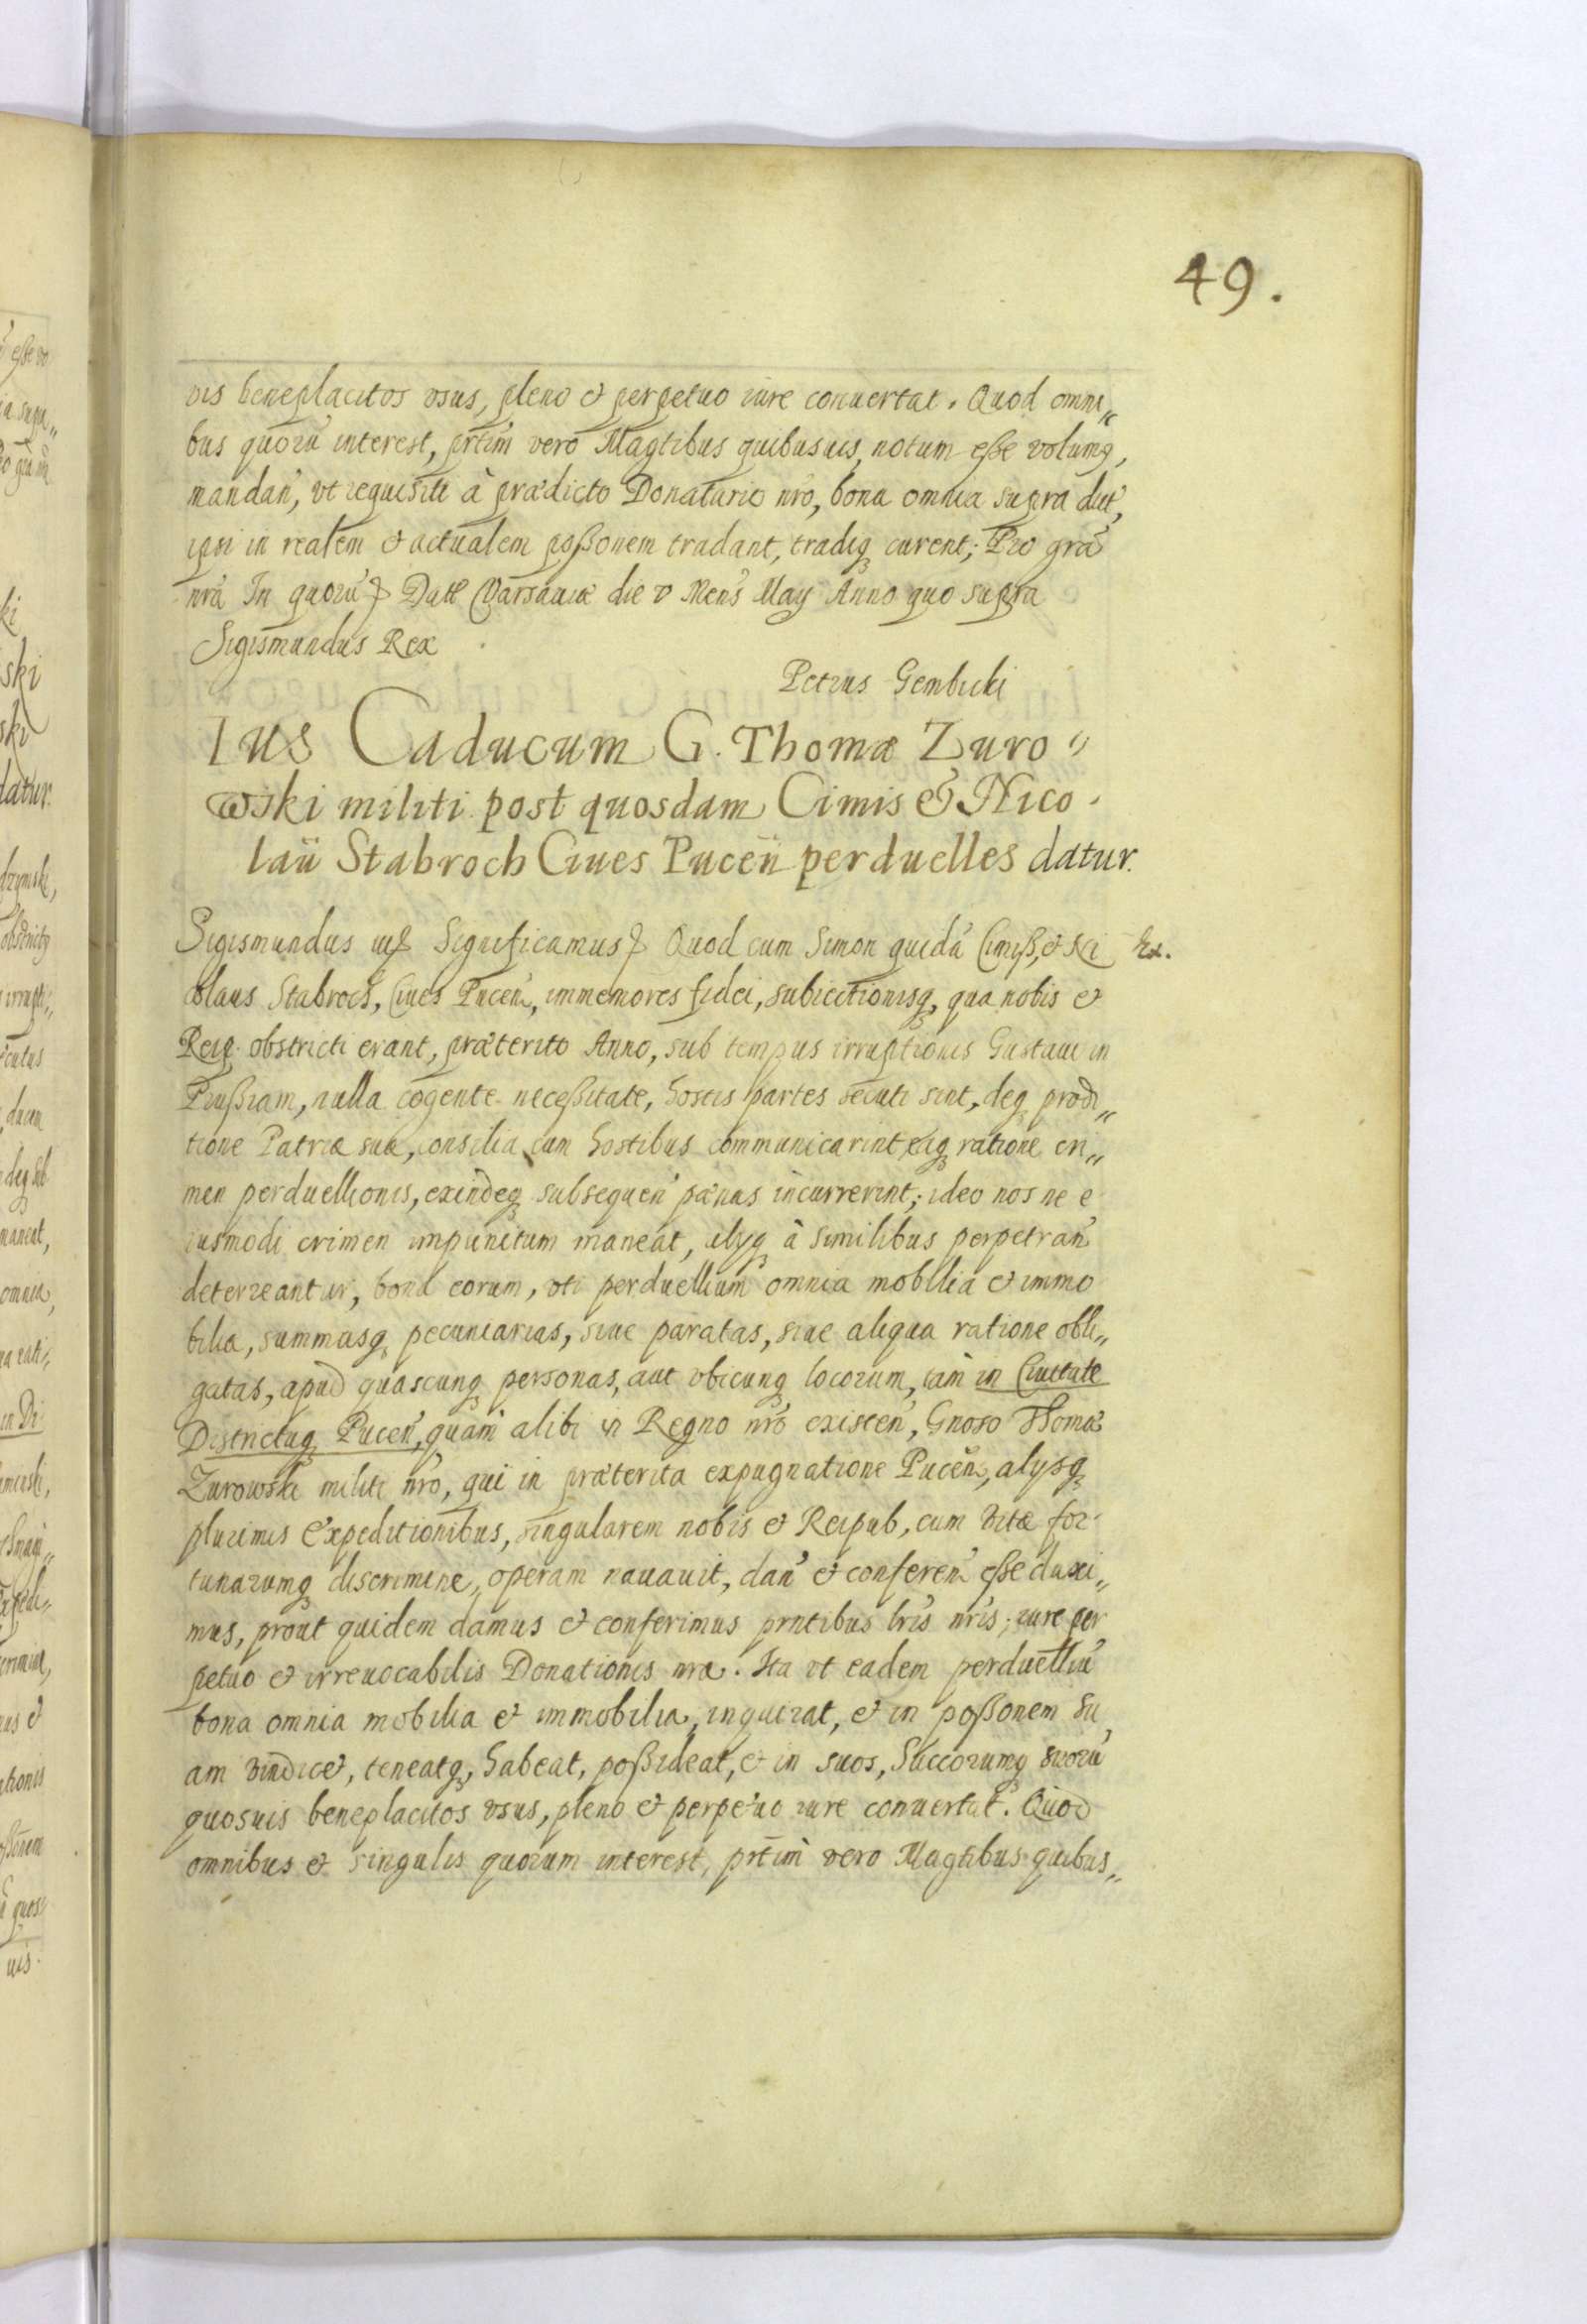 49.
vis beneplacitos vsus, pleno & perpetuo iure conuertat. Quod omni„
bus quorũ interest, prtim̃ vero Magtibus quibusuis, notum eße volumq,
mandan̄, vt requisiti à prædicto Donatario nrõ, bona omnia supra dict,
ipsi in realem & actualem poßonem tradant, tradiq curent; Pro grã
nrã In quorũ Datt Varsauiæ die v Mens̃ May Anno quo supra
Sigismundus Rex
Petrus Gembicki
Ius Caducum G. Thomæ Zuro„
wski militi post quosdam Cimis & Nico
laũ Stabroch Ciues Puceñ perduelles datur.
Sigismundus Significamus Quod cum Simon quidã Cimiß, & Ni
Ex.
colaus Stabroch, Ciues Puceñ, immemores fidei, subiectionisq, qua nobis &
Reip. obstricti erant, præterito Anno, sub tempus irruptionis Gustaui in
Prußiam, nulla cogente neceßitate, hostis partes secuti sint, deq prodi„
tione Patriæ suæ, consilia cum hostibus communicarint eaq ratione cri„
men perduellionis, exindeq subsequen̄ pœnas incurrerint; ideo nos ne e
iusmodi crimen impunitum maneat, alyq à similibus perpetran̄
deterreantur, bona eorum, vti perduellium omnia mobilia & immo
bilia, summasq pecuniarias, siue paratas, siue aliqua ratione obli„
gatas, apud quascunq personas, aut vbicunq locorum, tàm in Ciuitate
Districtuq Puceñ, quàm alibi in Regno nrõ existen̄, Gnoso Thomæ
Zurowski militi nrõ, qui in præterita expugnatione Puceñ, alysq
plurimis Expeditionibus, singularem nobis & Reipub, cum vitæ for
tunarumq discrimine, operam nauauit, dan̄ & conferen̄ eße duxi„
mus, prout quidem damus & conferimus prntibus lris̃ nris̃; iure per
petuo & irreuocabilis Donationis nræ. Ita vt eadem perduelliũ
bona omnia mobilia & immobilia, inquirat, & in poßonem su
am vindicet, teneatq, habeat, poßideat, & in suos, Succorumq suorũ
quosuis beneplacitos vsus, pleno & perpetuo iure conuertat. Quod
omnibus & singulis quorum interest, prtim̃ vero Magtibus quibus„